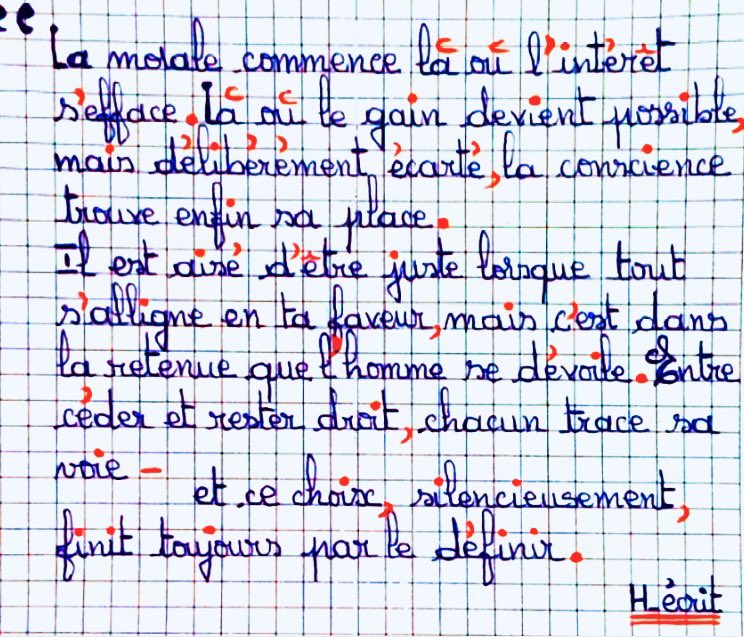 La morale commence là où l'intérêt
s'efface. Là où le gain devient possible,
mais délibérément écarté, la conscience
trouve enfin sa place.
Il est aisé d'être juste lorsque tout
s'alligne en ta faveur, mais c'est dans
la retenue que l'homme se dévoile. Entre
céder et rester droit, chacun trace sa
voie -
et ce choix, silencieusement,
finit toujours par le définir.
H_écrit